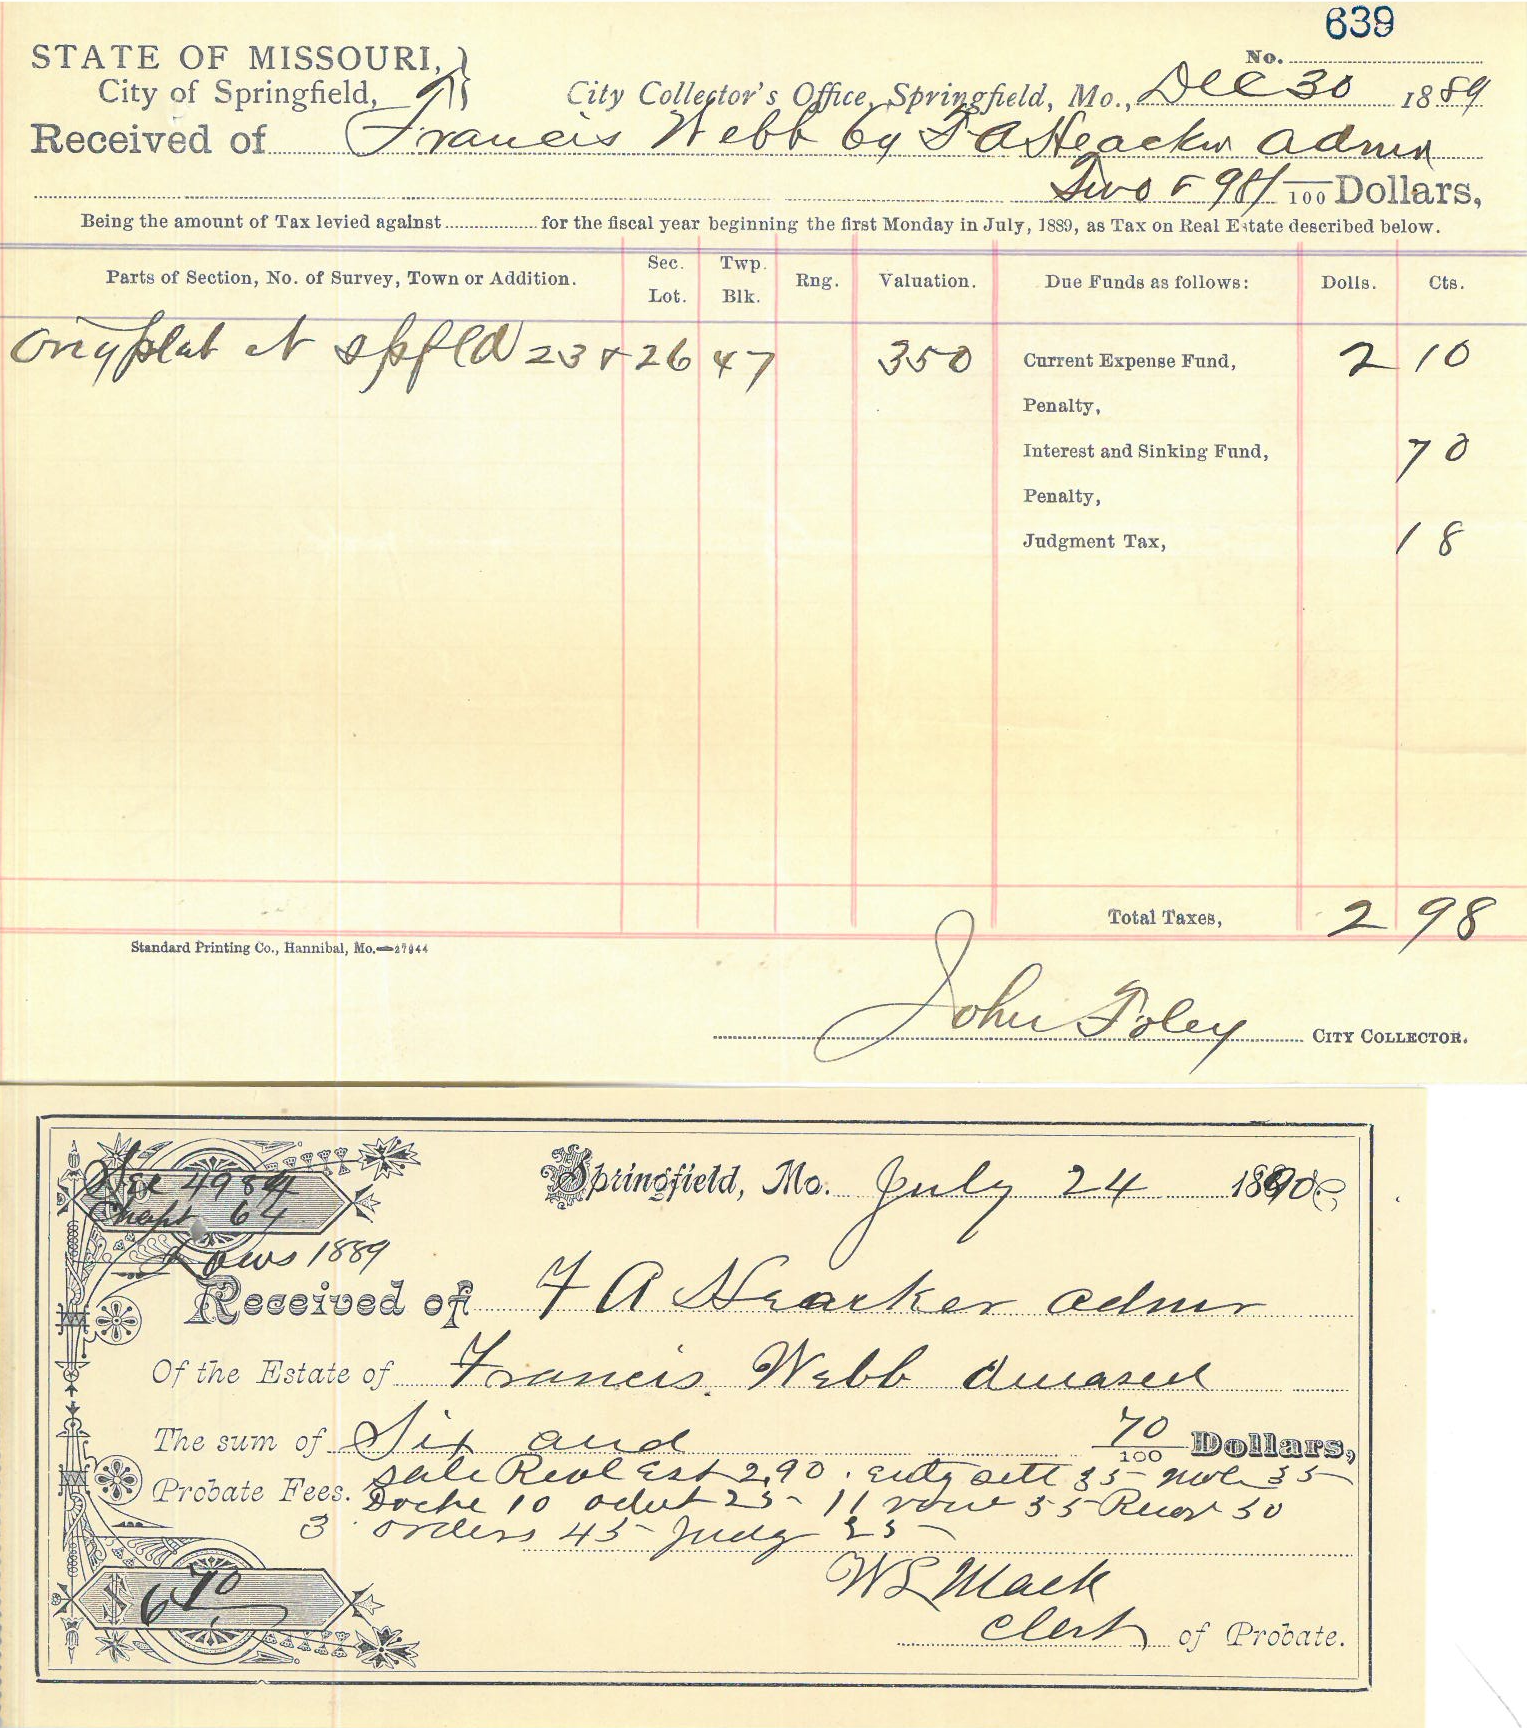 639
STATE OF MISSOURI, }
No.
City of Springfield,
City Collector's Office, Springfield, Mo., Dec 30 1889
Received of Francis Webb by F A Heacker admr
Two & 98/100 Dollars,
Being the amount of Tax levied against for the fiscal year beginning the first Monday in July, 1889, as Tax on Real Estate described below.
Parts of Section, No. of Survey, Town or Addition. Sec. Lot. Twp. Blk. Rng. Valuation. Due Funds as follows: Dolls. Cts.
Orig plat of Spfld 23 & 26 47 350 Current Expense Fund, 2 10
Penalty,
Interest and Sinking Fund, 70
Penalty,
Judgment Tax, 18
Total Taxes, 2 98
Standard Printing Co., Hannibal, Mo.—27944
John Foley CITY COLLECTOR.
Sec 4984
Chapt 64
Laws 1889
Springfield, Mo. July 24 1890
Received of F A Heacker admr
Of the Estate of Francis Webb deceased
The sum of Six and 70/100 Dollars,
Probate Fees. Sale Real Est 2,90. 35 35
10 25 11 55 50
3 orders 45
$ 6 70
W L Mack
Clerk of Probate.